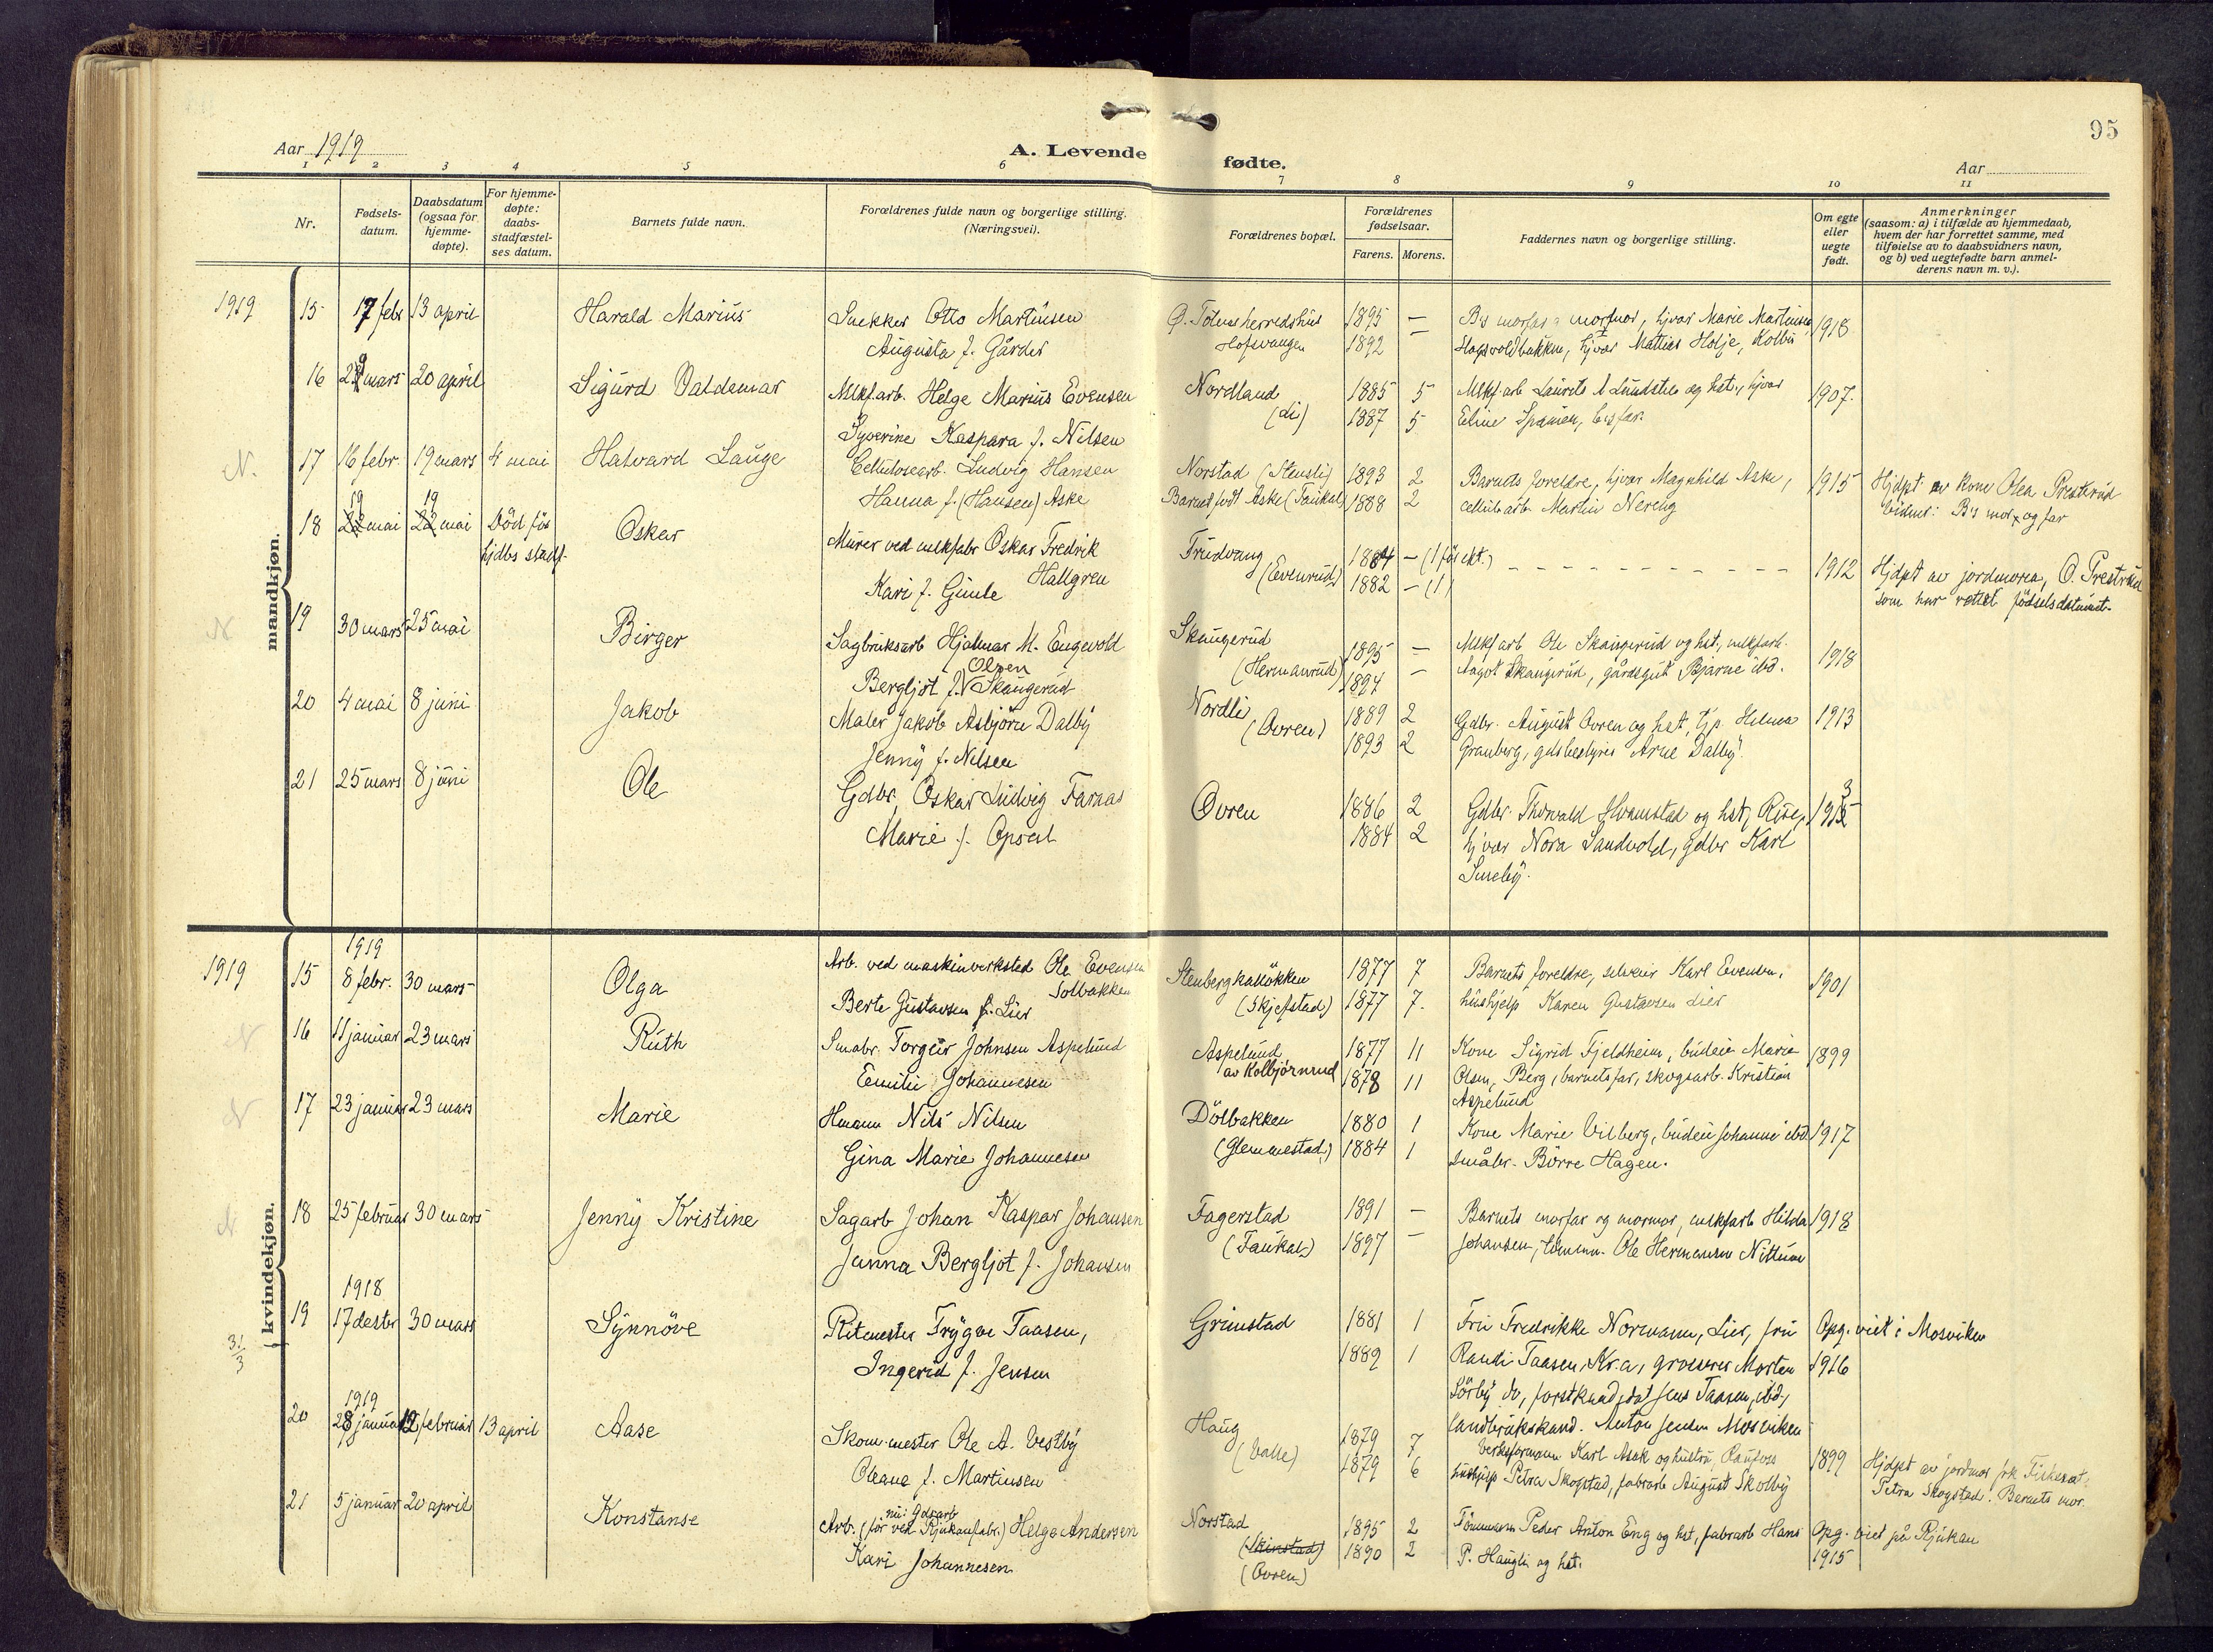 95
Aar 1919
A. Levende fødte.
Aar
1 2 3 4 5 6 7 8 9 10 11
Nr.
Fødsels-
datum.
Daabsdatum
(ogsaa for
hjemme-
døpte).
For hjemme-
døpte:
daabs-
stadfæstel-
ses datum.
Barnets fulde navn.
Forældrenes fulde navn og borgerlige stilling.
(Næringsvei).
Forældrenes bopæl.
Forældrenes
fødselsaar.
Farens. Morens.
Faddernes navn og borgerlige stilling.
Om egte
eller
uegte
født.
Anmerkninger
(saasom: a) i tilfælde av hjemmedaab,
hvem der har forrettet samme, med
tilføielse av to daabsvidners navn,
og b) ved uegtefødte barn anmel-
derens navn m. v.).
mandkjøn.
1919 15 17 febr 13 april Harald Marius Snekker Otto Martinsen Ø. Totens herredshus 1895 — B's morfar morfmor, hjvær Marie Martinsen 1918
Augusta f. Gårder Hofsvangen 1892 — Hagsvoldbakken, hjvær Mattias Holje, Kolbu
16 29 mars 20 april Sigurd Valdemar Mlkf.arb. Helge Marius Evensen Nordland 1885 5 Mlkf.arb Laurits A Lundsten og hst., hjvær 1907.
Syverine Kaspara f. Nilsen (Li) 1887 5 Eline Spanien, b's far.
N. 17 16 febr. 19 mars 4 mai Halvard Lauge Cellulosearb. Ludvig Hansen Norstad (Stensli) 1893 2 Barnets foreldre, hjvær Magnhild Aske, 1915 Hjdpt av kone Olea Prestrud
Hanna f. (Hansen) Aske Barnet født Aske (Taukal) 1888 2 cellulearb. Martin Nereng Vidner: B's mor og far
18 19 22 mai 19 22 mai Død før Oskar Murer ved mlkfabr Oskar Fredrik Trudvang 1884 — (1 før ekt.) 1912 Hjdpt av jordmoren, O. Prestrud
hjdbs stadf. Hallgren
Kari f. Gimle (Evenrud) 1882 — (1) som har rettet fødselsdatumet.
N 19 30 mars 25 mai Birger Sagbruksarb Hjalmar M. Engevold Skaugerud 1895 — Mlkf arb Ole Skaugerud og hst., mlkfarb. 1918
Olsen
Bergljot f. Skaugerud (Hermanrud) 1894 — Aagot Skaugerud, gårdsgut Bjarne ibd.
20 4 mai 8 juni Jakob Maler Jakob Asbjørn Dalby Nordli 1889 2 Gdbr. August Ovren og hst, tjp. Helma 1913
Jenny f. Nilsen (Ovren) 1893 2 Granberg, gdsbestyrer Arne Dalby.
21 25 mars 8 juni Ole Gdbr. Oskar Ludvig Farnas Ovren 1886 2 Gdbr. Thorvald Hvamstad og hst, Rise, 1913
Marie f. Opsal 1884 2 hjvær Nora Sandvold, gdbr Karl
Suseby.
kvindekjøn.
1919 15 1919 8 febr. 30 mars Olga Arb. ved maskinverksted Ole Evensen Stenbergkalløkken 1877 7 Barnets foreldre, Karl Evensen, 1901
Solbakken
Berte Gustavsen f. Lier (Skjefstad) 1877 7. hushjelp Karen Gustavsen Lier
N 16 11 januar 23 mars Ruth Småbr. Torgeir Johnsen Aspelund Aspelund 1877 11 Kone Sigrid Fjeldheim, budeie Marie 1899
Emilie Johannesen av Kolbjørnrud 1878 11 Olsen, Berg, barnets far, skogsarb. Kristian
Aspelund
N 17 23 januar 23 mars Marie Hmann Nils Nilsen Dølbakken 1880 1 Kone Marie Vilberg, budeie Johanne ibd. 1917
Gina Marie Johannesen (Glemmestad) 1884 1 småbr. Børre Hagen.
N 18 25 februar 30 mars Jenny Kristine Sagarb Johan Kaspar Johansen Fagerstad 1891 — Barnets morfar og mormor, mlkfarb Hilda 1918
Janna Bergljot f. Johansen (Taukal) 1897 — Johansen, tømm. Ole Hermansen Nittum
31/3 19 1918 17 desbr 30 mars Synnöve Ritmester Trygve Taasen, Grimstad 1881 1 Fru Fredrikke Normann, Lier, fru Opg. viet i Mosviken
Ingerid f. Jensen 1889 1 Randi Taasen, Kr.a, grosserer Morten 1916
Sørby do, forstkandidat Jens Taasen, ibd.,
landbrukskand. Anton Jensen Mosviken
20 1919 28 januar 12 februar 13 april Aase Skom.mester Ole A. Vestby Haug 1879 7 Verksformann Karl Asak og hustru, Raufoss 1899 Hjdpt av jordmor frk Fiskeset.
Oleane f. Martinsen (Valle) 1879 6 hushjelp Petra Skogstad, fabrarb August Skolby Petra Skogstad. Barnets mor.
21 5 januar 20 april Konstanse nu: Gdsarb
Arb. (før ved Rjukanfabr.) Helge Andersen Norstad 1895 2 Tømmerm Peder Anton Eng og hst, fabrarb Hans Opg. viet på Rjukan
Kari Johannesen (Skinstad) 1890 2 P. Haugli og hst. 1915
(Ovren)